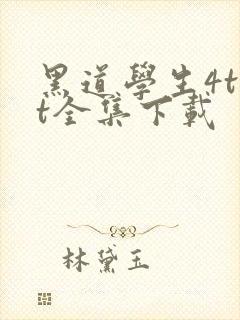 黑道學生4t
t全集下載
林黛玉